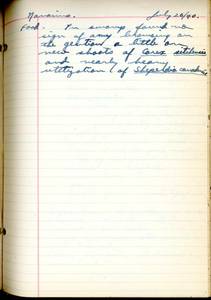 July 28/40.
Food. In swamp found no
sign of any browsing on
the gentian a little on
new shoots of Carex
and nearly heavy
utilization of Shepherdia canadensis